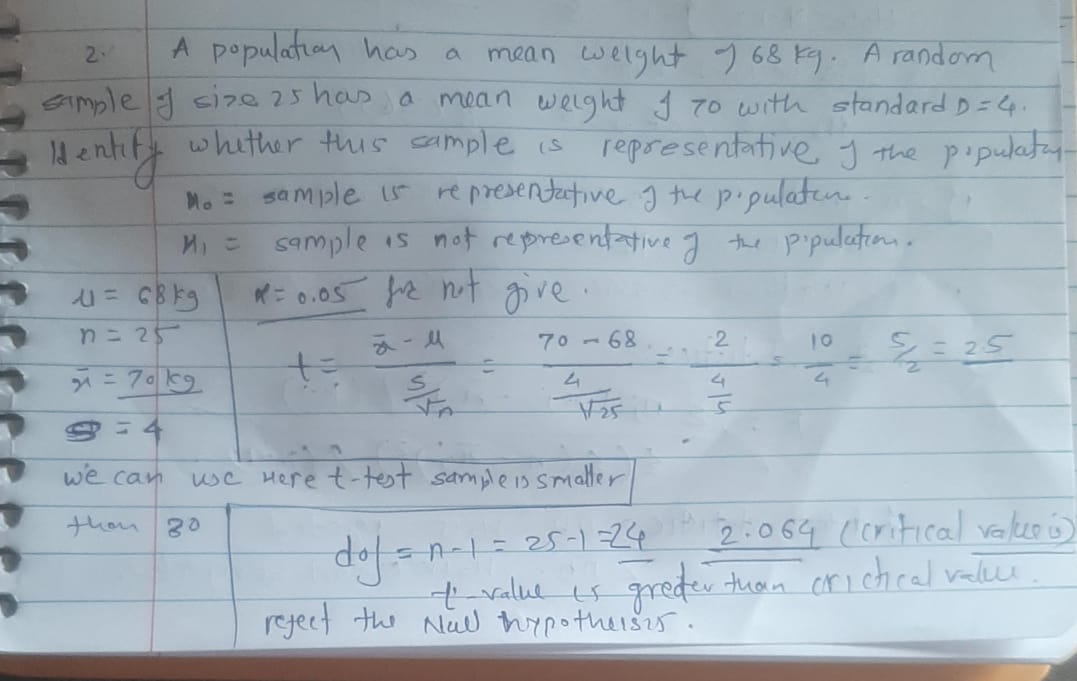 2. A population has a mean weight of 68 kg. A random
sample of size 25 has a mean weight of 70 with standard D = 4.
Identify whether this sample is representative of the populatan
H₀ = sample is representative of the populaten.
H₁ = sample is not representative of the population.
μ = 68 kg
n = 25
x̄ = 70 kg
S = 4
α = 0.05 for not give.
t = (x̄ - μ) / (S/√n) = (70 - 68) / (4/√25) = 2 / (4/5) = 10/4 = 5/2 = 25
we can use here t-test sample is smaller
than 30
dof = n-1 = 25-1 = 24 2.064 (critical value is)
t-value is greder than crichcal value.
reject the Null hypotheisis.